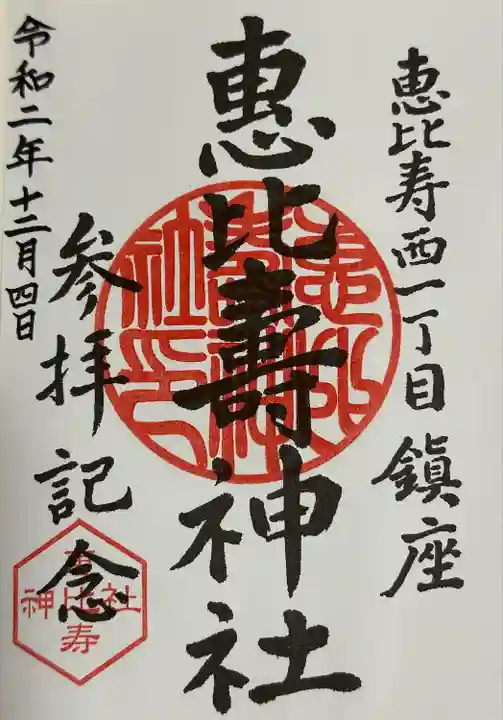 恵比寿西一丁目鎮座
恵比壽神社
参拝記念
令和二年十二月四日
恵比寿
神社